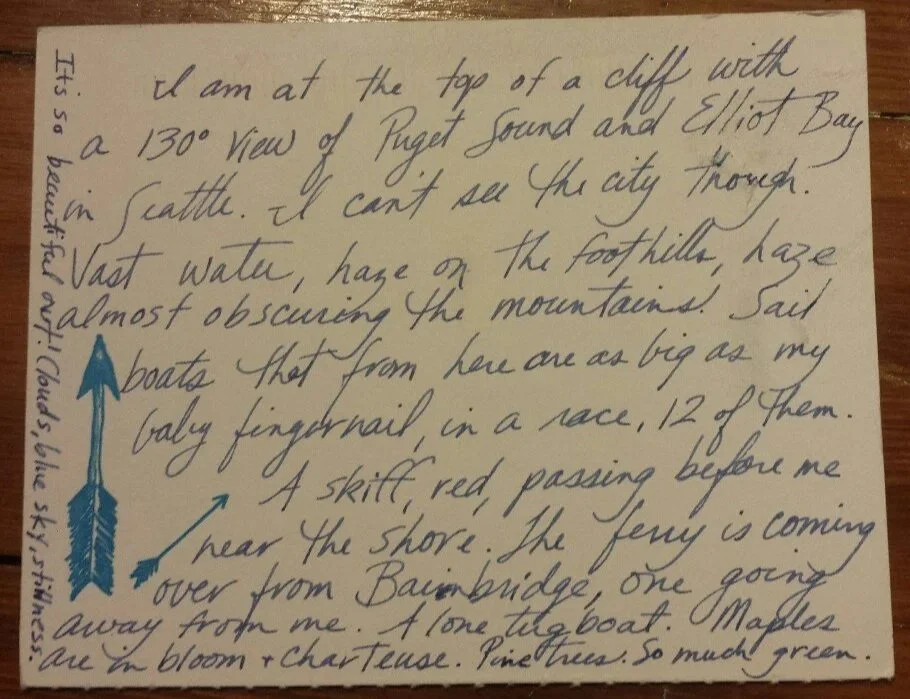 I am at the top of a cliff with
a 130° view of Puget Sound and Elliot Bay
in Seattle. I can't see the city though.
Vast water, haze on the foothills, haze
almost obscuring the mountains. Sail
boats that from here are as big as my
baby fingernail, in a race, 12 of them.
A skiff, red, passing before me
near the shore. The ferry is coming
over from Bainbridge, one going
away from me. A lone tugboat. Maples
are in bloom + charteuse. Pine trees. So much green.
It's so beautiful out! Clouds, blue sky, stillness.